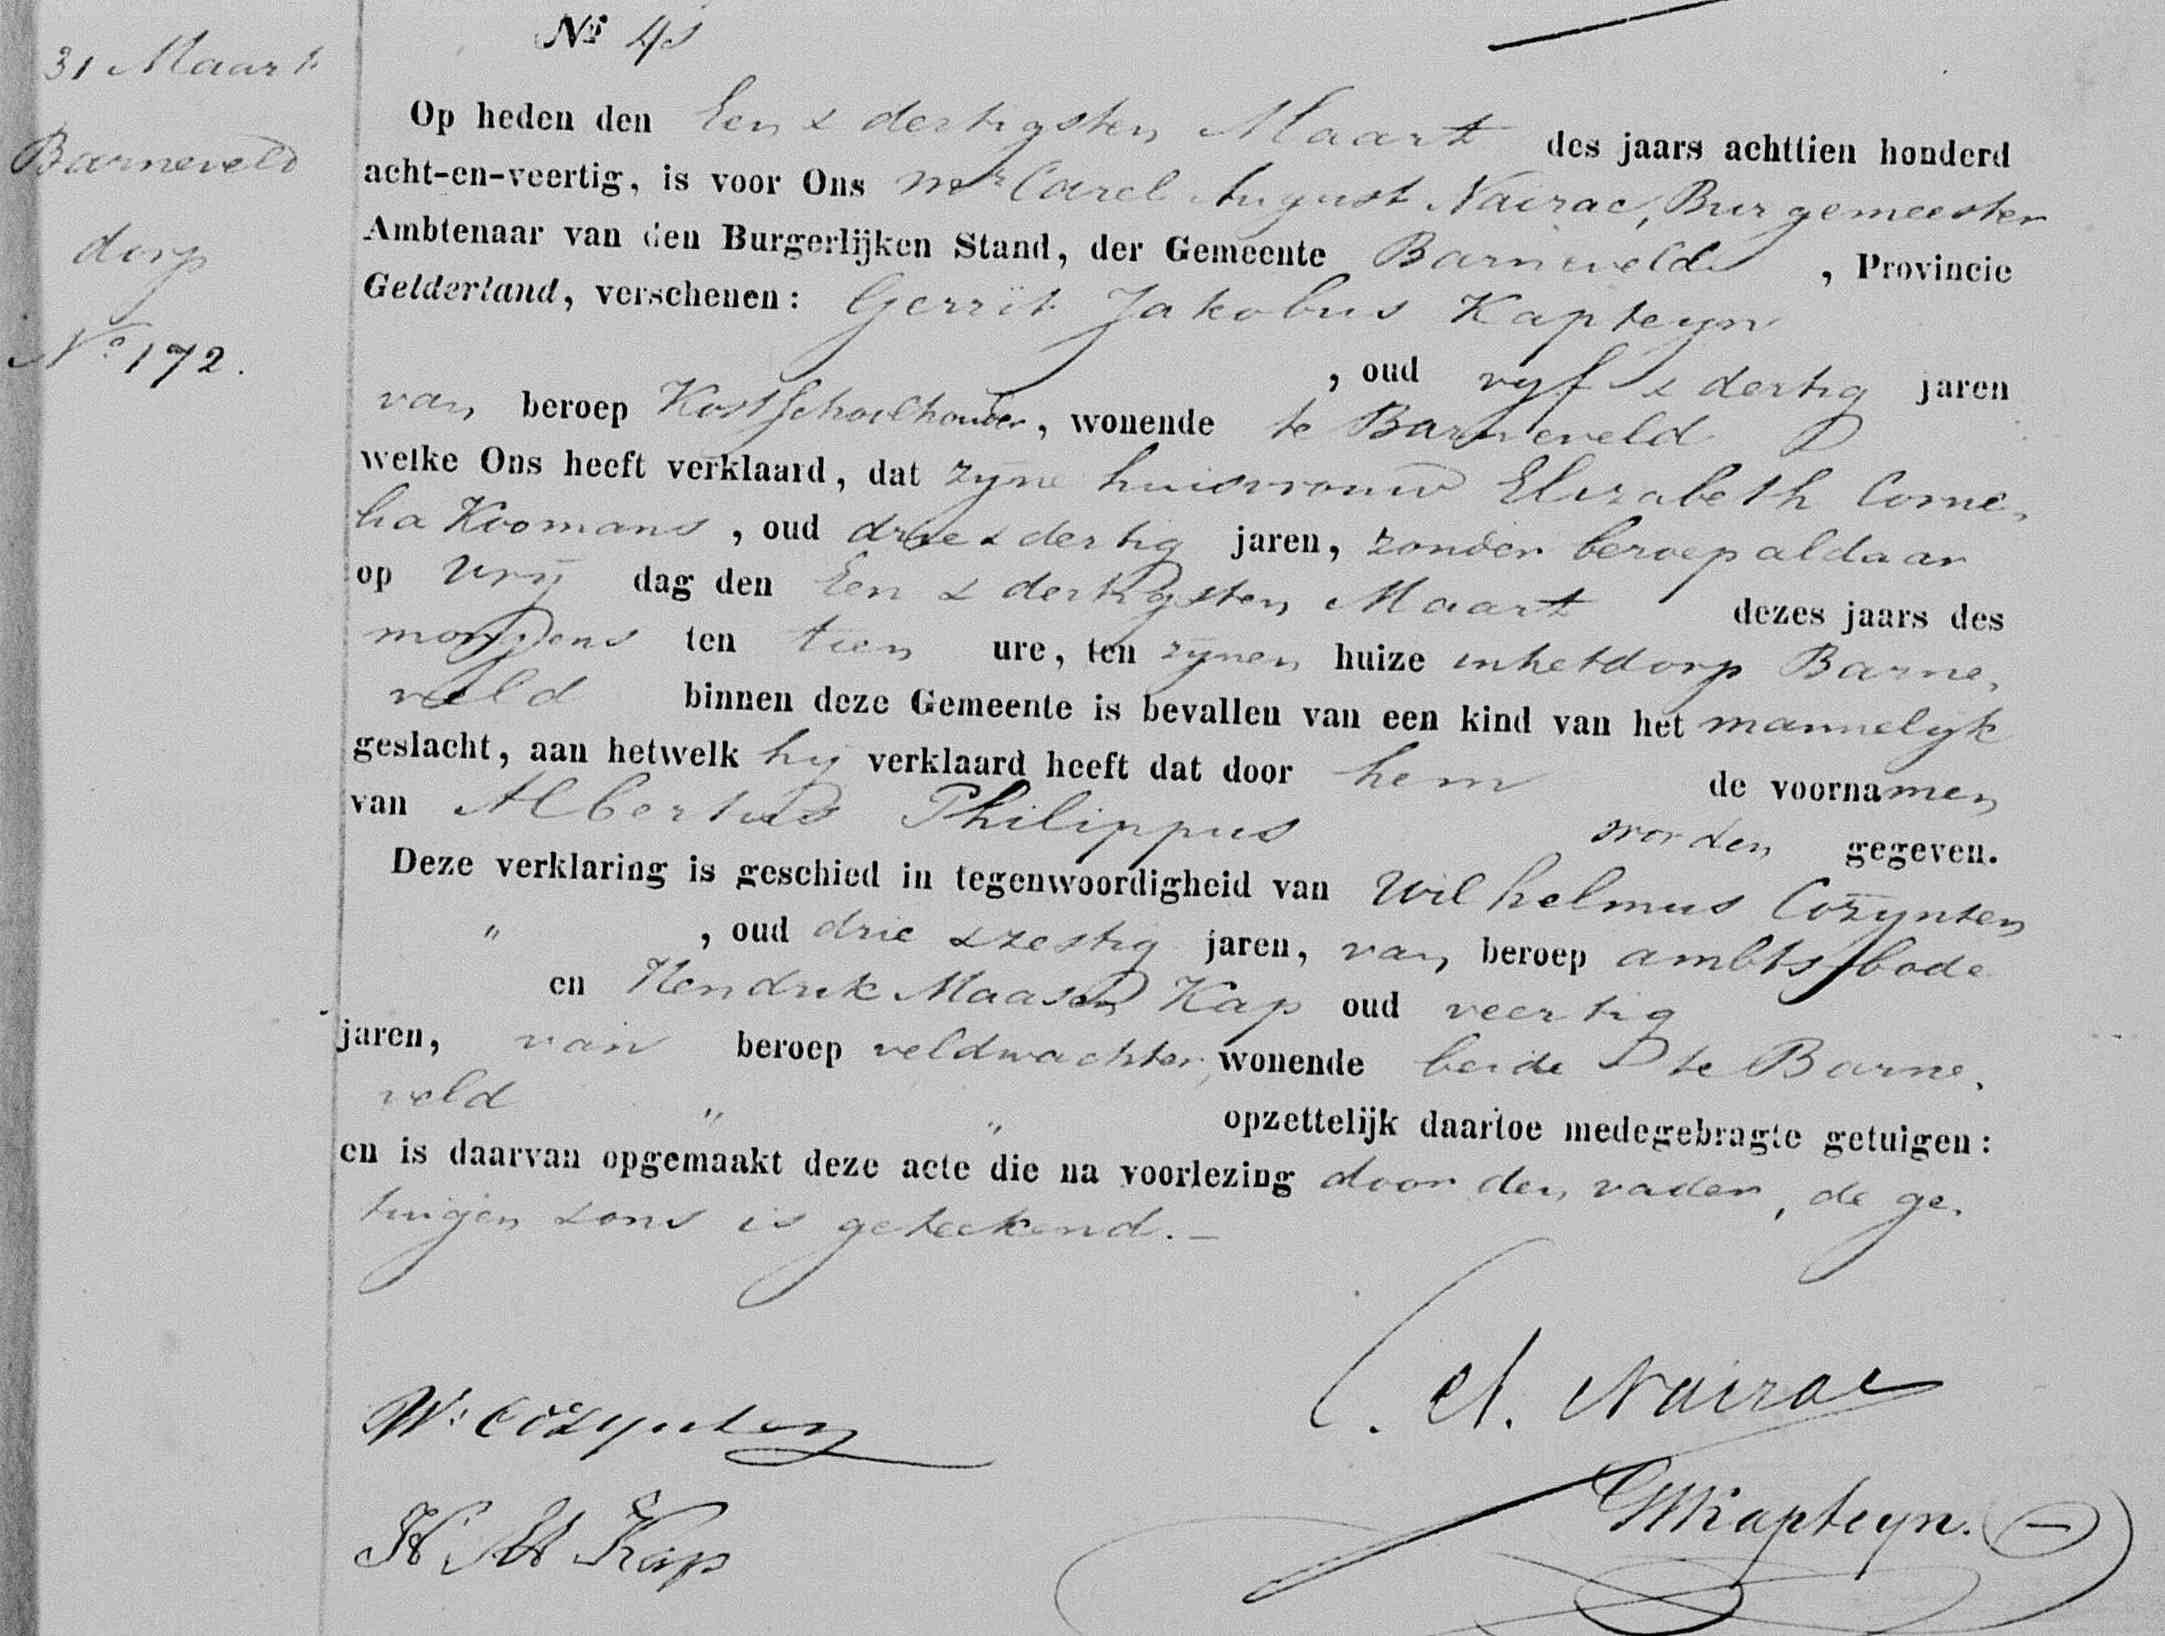 31 Maart
Barneveld
dorp
No 172.
No 45
Op heden den Een & dertigsten Maart des jaars achttien honderd
acht-en-veertig, is voor Ons Mr Carel August Nairac, Burgemeester
Ambtenaar van den Burgerlijken Stand, der Gemeente Barneveld , Provincie
Gelderland, verschenen: Gerrit Jakobus Kapteyn
, oud vyf & dertig jaren
van beroep Kostschoolhouder, wonende te Barneveld
welke Ons heeft verklaard, dat zyne huisvrouw Elizabeth Corne,
lia Koomans , oud drie & dertig jaren, zonder beroep aldaar
op Vrij dag den Een & dertigsten Maart dezes jaars des
morgens ten tien ure, ten zynen huize in het dorp Barne,
veld binnen deze Gemeente is bevallen van een kind van het mannelyk
geslacht, aan hetwelk hij verklaard heeft dat door hem de voornamen
van Albertus Philippus worden gegeven.
Deze verklaring is geschied in tegenwoordigheid van Wilhelmus Cozynsen
" , oud drie & zestig jaren, van beroep ambtsbode
en Hendrik Maasen Kap oud veertig
jaren, van beroep veldwachter, wonende beide te Barne,
veld " " opzettelijk daartoe medegebragte getuigen:
en is daarvan opgemaakt deze acte die na voorlezing door den vader, de ge,
tuigen & ons is geteekend.–
C. A. Nairac
W. Cozynsen
GJKapteyn.
H M Kap